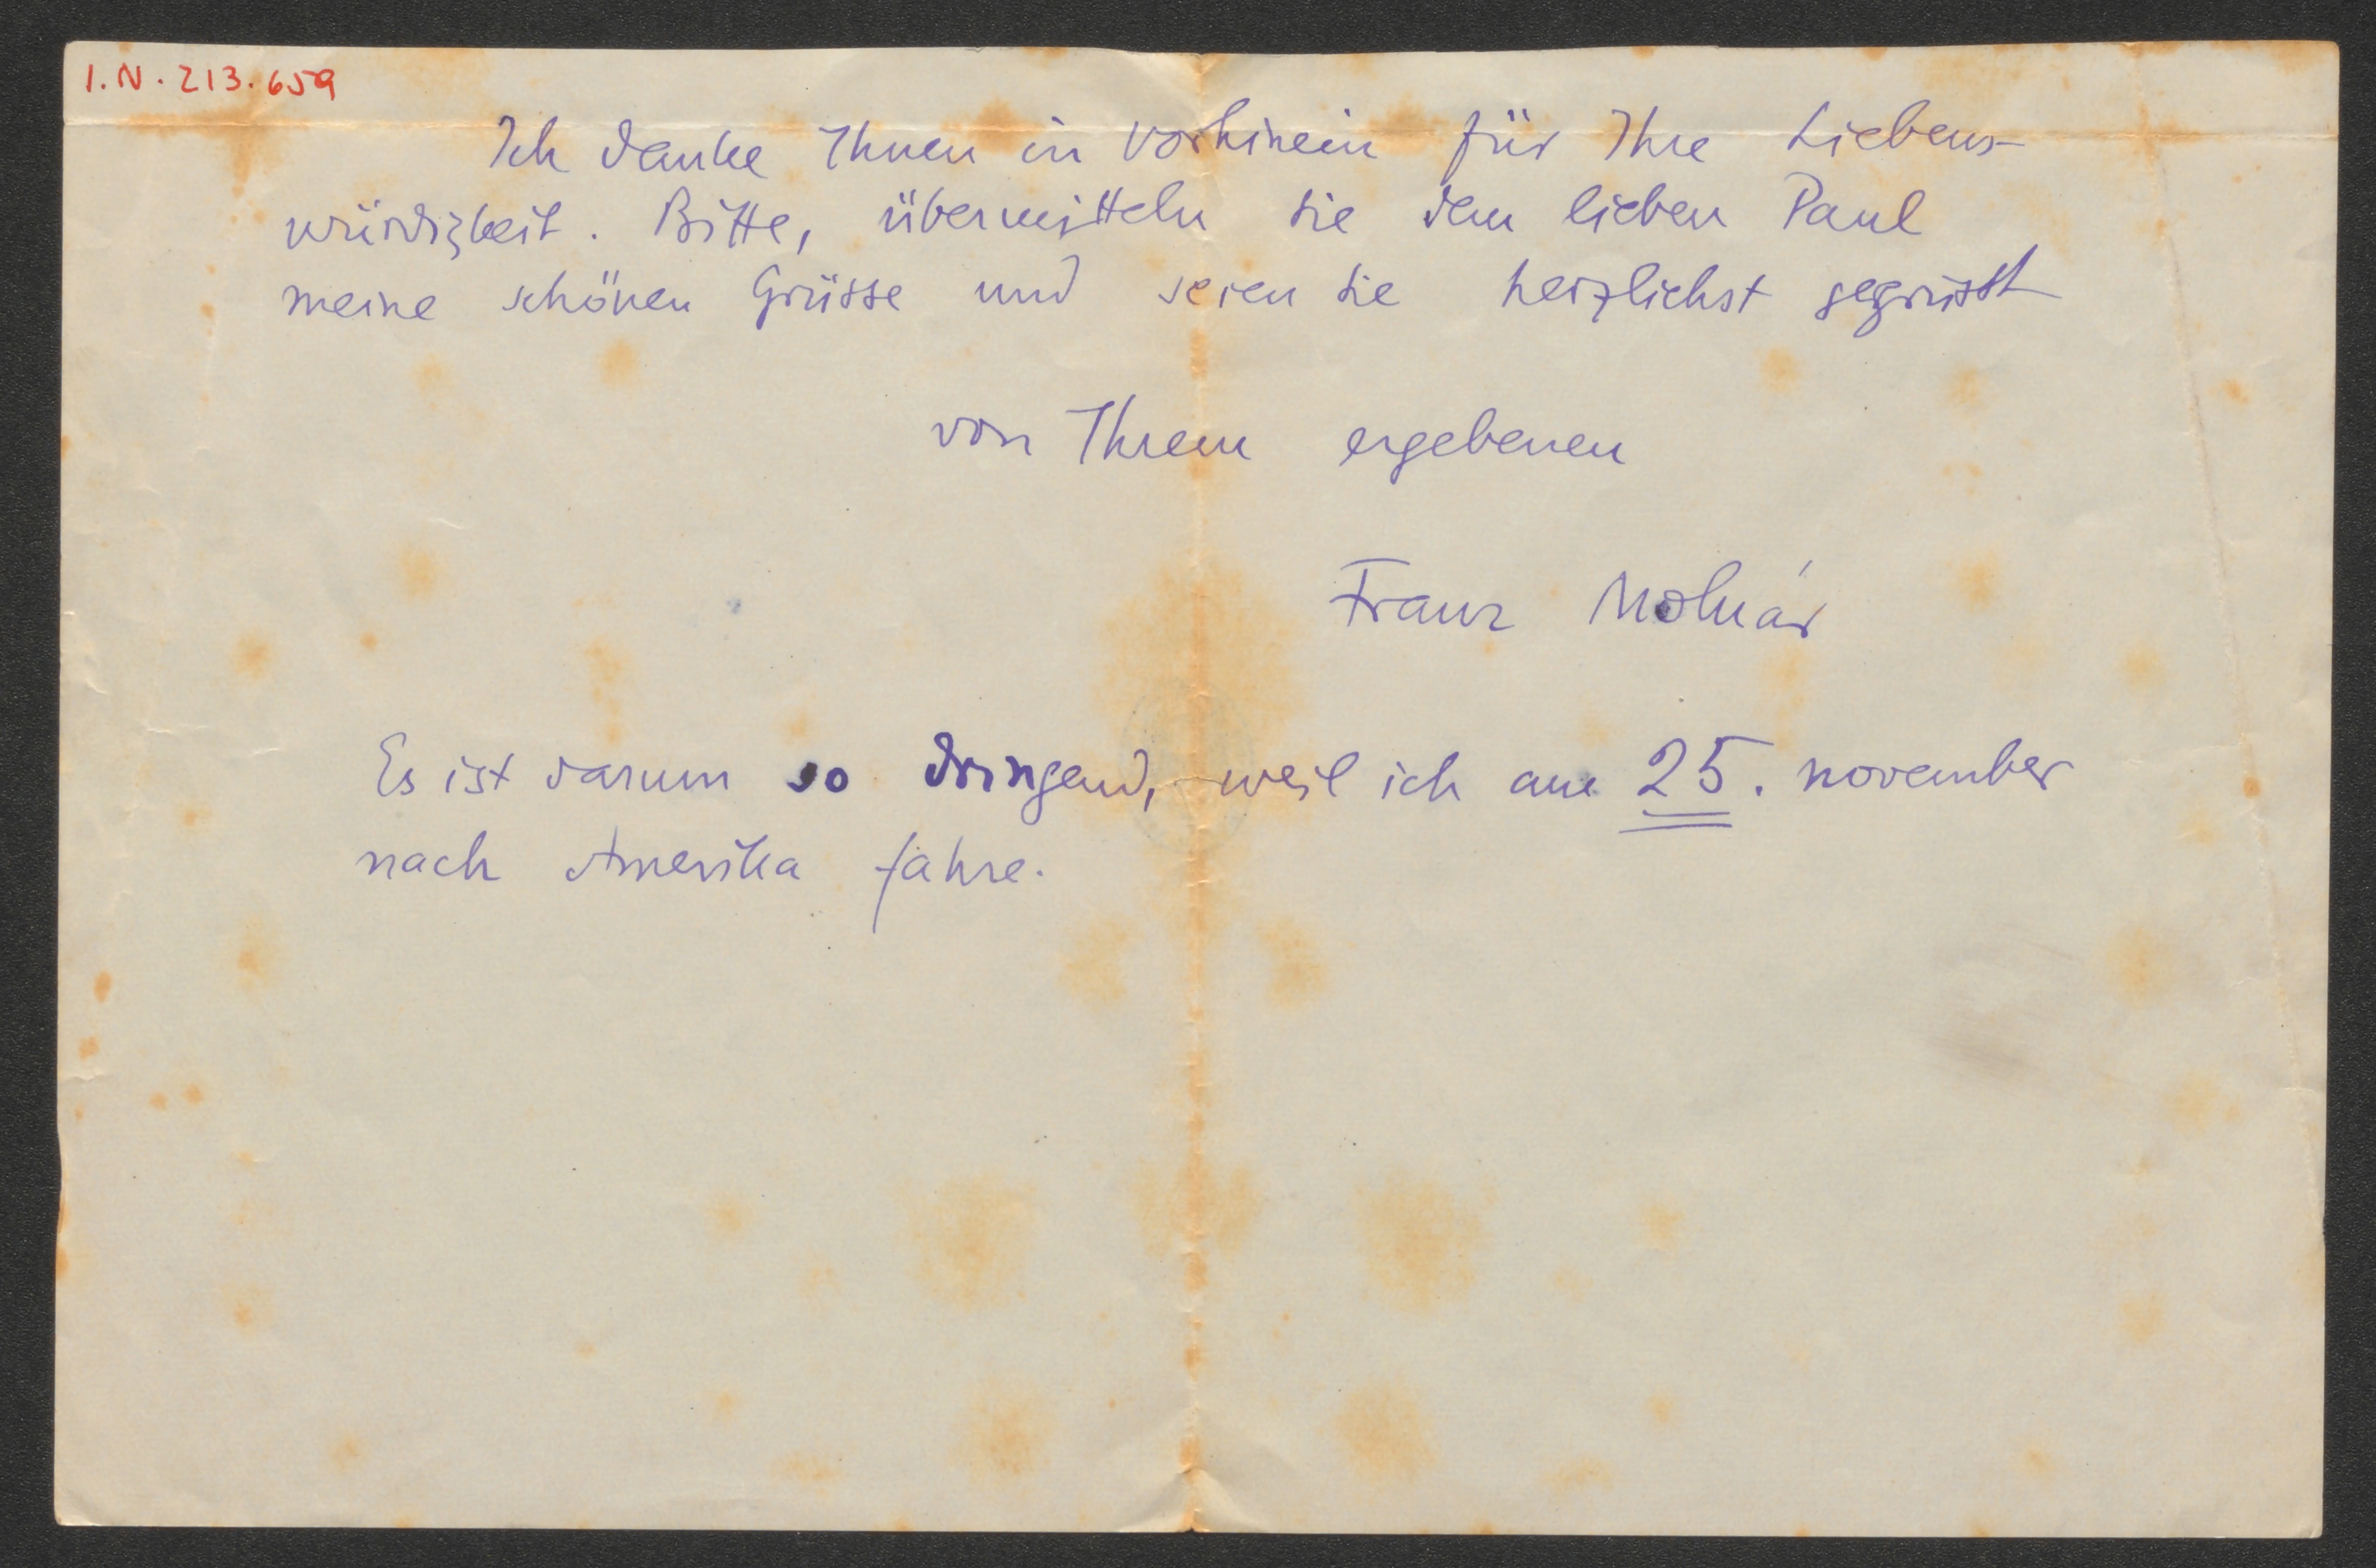 I.N. 213.659
Ich danke Ihnen in vorhinein für Ihre Liebens-
würdigkeit. Bitte, übermitteln Sie dem lieben Paul
meine schönen Grüsse und seien Sie herzlichst gegrüsst
von Ihrem ergebenen
Franz Molnár
Es ist darum so dringend, weil ich am 25. november
nach Amerika fahre.